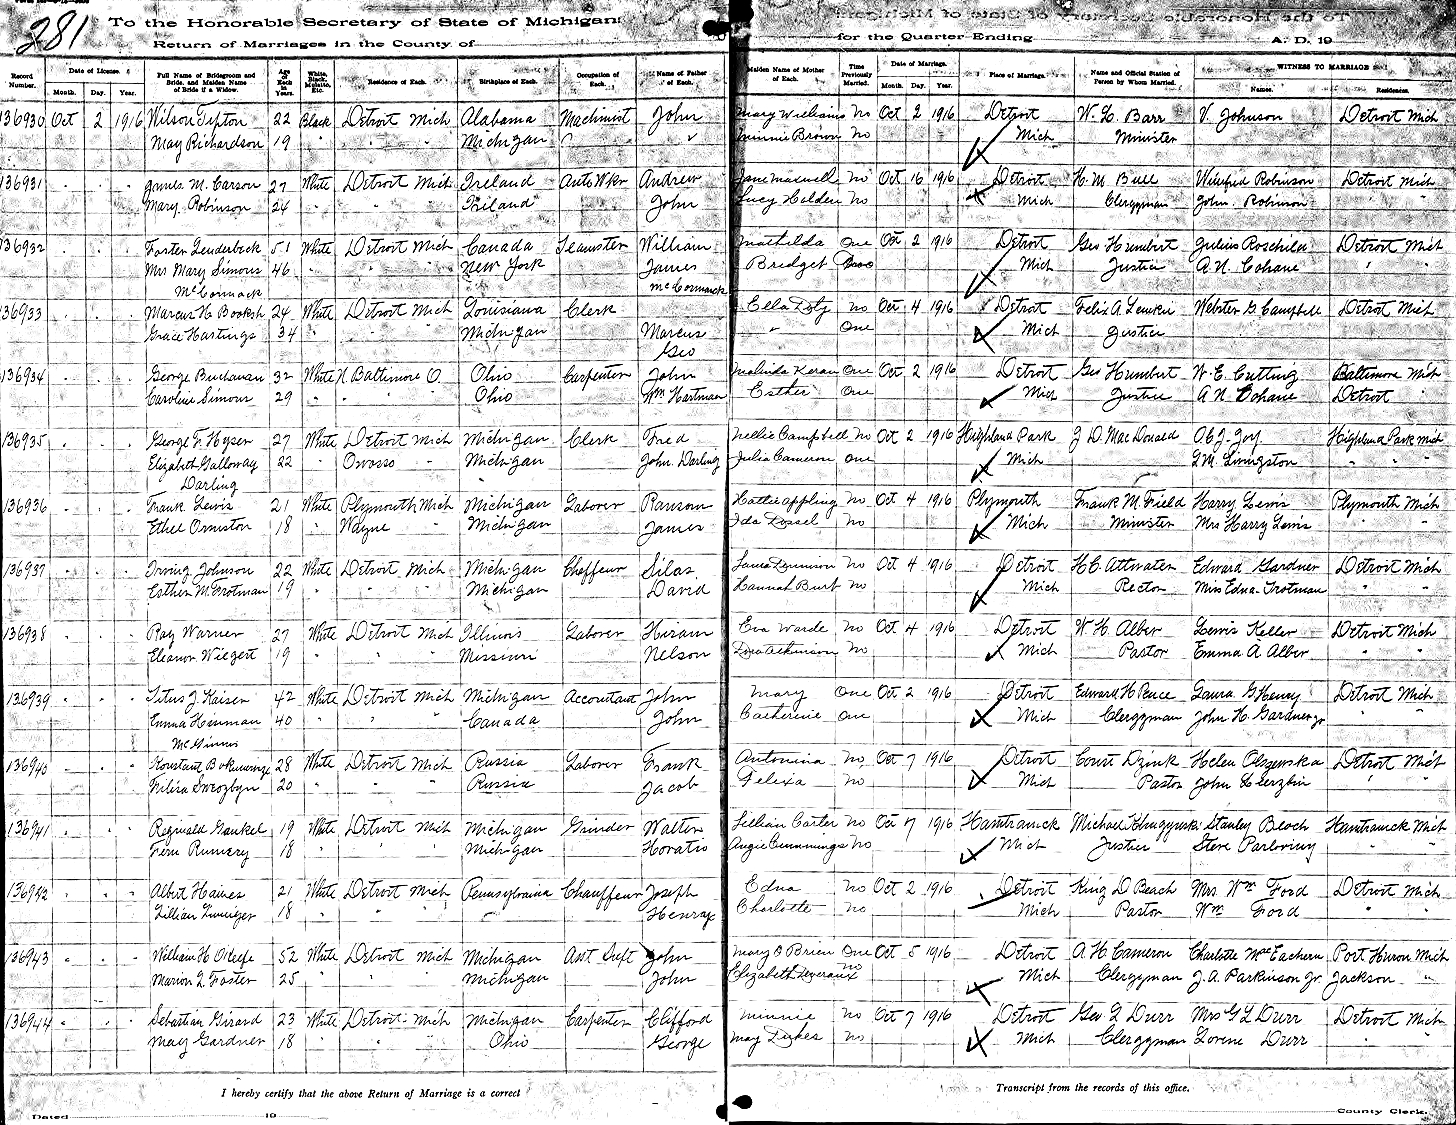 281
To the Honorable Secretary of State of Michigan:
Return of Marriages in the County of
for the Quarter Ending A. D. 19
Record Number. Date of License. Month. Day. Year. Full Name of Bridegroom and Bride, and Maiden Name of Bride if a Widow. Age of Each in Years. White, Black, Mulatto, Etc. Residence of Each. Birthplace of Each. Occupation of Each. Name of Father of Each. Maiden Name of Mother of Each. Time Previously Married. Date of Marriage. Month. Day. Year. Place of Marriage. Name and Official Station of Person by Whom Married. WITNESS TO MARRIAGE Names. Residences.
136930 Oct 2 1916 Wilson Tipton 22 Black Detroit Mich Alabama Machinist John Mary Williams No Oct 2 1916 Detroit W. L. Barr V. Johnson Detroit Mich
May Richardson 19 " " " Michigan " Minnie Brown No Mich Minister
136931 James M. Carson 27 White Detroit Mich Ireland Auto Wkr Andrew Jane Maxwell No Oct 16 1916 Detroit H. M. Bull Winifred Robinson Detroit Mich
Mary Robinson 24 Ireland John Lucy Holden No Mich Clergyman John Robinson
136932 Foster Lenderbeck 51 White Detroit Mich Canada Teamster William Mathilda One Oct 2 1916 Detroit Geo Humbert Julius Roschild Detroit Mich
Mrs Mary Simons 46 New York James Bridget Mich Justice A. N. Cohane
McCormack McCormack
136933 Marcus H. 24 White Detroit Mich Louisiana Clerk Ella Doty No Oct 4 1916 Detroit Felix A Lemkie Webster G. Campbell Detroit Mich
Grace Hastings 34 Michigan Marcus " One Mich Justice
Geo
136934 George Buchanan 32 White N. Baltimore O. Ohio Carpenter John Malinda One Oct 2 1916 Detroit Geo Humbert W. E. Cutting Baltimore Mich
Caroline Simons 29 Ohio Wm Hartman Esther One Mich Justice A N Cohane Detroit
136935 George F. Heyser 27 White Detroit Mich Michigan Clerk Fred Nellie Campbell No Oct 2 1916 Highland Park J D. MacDonald O. C. J. Joy Highland Park Mich
Elizabeth Galloway 22 Owosso Michigan John Darling Julia Cameron One Mich G M. Livingston
Darling
136936 Frank Lewis 21 White Plymouth Mich Michigan Laborer Ranson Hattie Appling No Oct 4 1916 Plymouth Frank M. Field Harry Lewis Plymouth Mich
Ethel Ormston 18 Wayne Michigan James Ida No Mich Minister Mrs Harry Lewis
136937 Irving Johnson 22 White Detroit Mich Michigan Cheffeur Silas No Oct 4 1916 Detroit H.C. Attwater Edward Gardner Detroit Mich
Esther M. Trotman 19 Michigan David Hannah Burt No Mich Rector Miss Edna Trotman
136938 Ray Warner 27 White Detroit Mich Illinois Laborer Hiram Eva Warde No Oct 4 1916 Detroit W H. Alber Lewis Keller Detroit Mich
Eleanor Wiegert 19 Missouri Nelson Dora Atkinson No Mich Pastor Emma A Alber
136939 Titus J Kaiser 42 White Detroit Mich Michigan Accountant John Mary One Oct 2 1916 Detroit Edward H Pence Laura G Henry Detroit Mich
Emma Hinman 40 Canada John Catherine One Mich Clergyman John H. Gardner Jr
McGinnis
136940 28 White Detroit Mich Russia Laborer Frank Antonina No Oct 7 1916 Detroit Helen Olszewska Detroit Mich
20 Russia Jacob Felixa No Mich Pastor John
136941 Reginald Gankel 19 White Detroit Mich Michigan Grinder Walter Lillian Carter No Oct 7 1916 Hamtramck Michael Stanley Bloch Hamtramck Mich
Fern Rumery 18 Michigan Horatio Angie Cummings No Mich Justice Steve
136942 Albert Haines 21 White Detroit Mich Pennsylvania Chauffeur Joseph Edna No Oct 2 1916 Detroit King D Beach Mrs Wm Ford Detroit Mich
Lillian 18 Henry Charlotte No Mich Pastor Wm Ford
136943 William H. O'Keefe 52 White Detroit Mich Michigan Asst Supt John Mary O'Brien One Oct 5 1916 Detroit A H. Cameron Charlotte MacEachern Port Huron Mich
Marion I Foster 25 Michigan John Elizabeth Devereaux No Mich Clergyman J. A. Parkinson Jr Jackson
136944 Sebastian Girard 23 White Detroit Mich Michigan Carpenter Clifford Minnie No Oct 7 1916 Detroit Geo L Durr Mrs G L Durr Detroit Mich
May Gardner 18 Ohio George May Dykes No Mich Clergyman Lorene Durr
I hereby certify that the above Return of Marriage is a correct Transcript from the records of this office.
Dated 19 County Clerk.